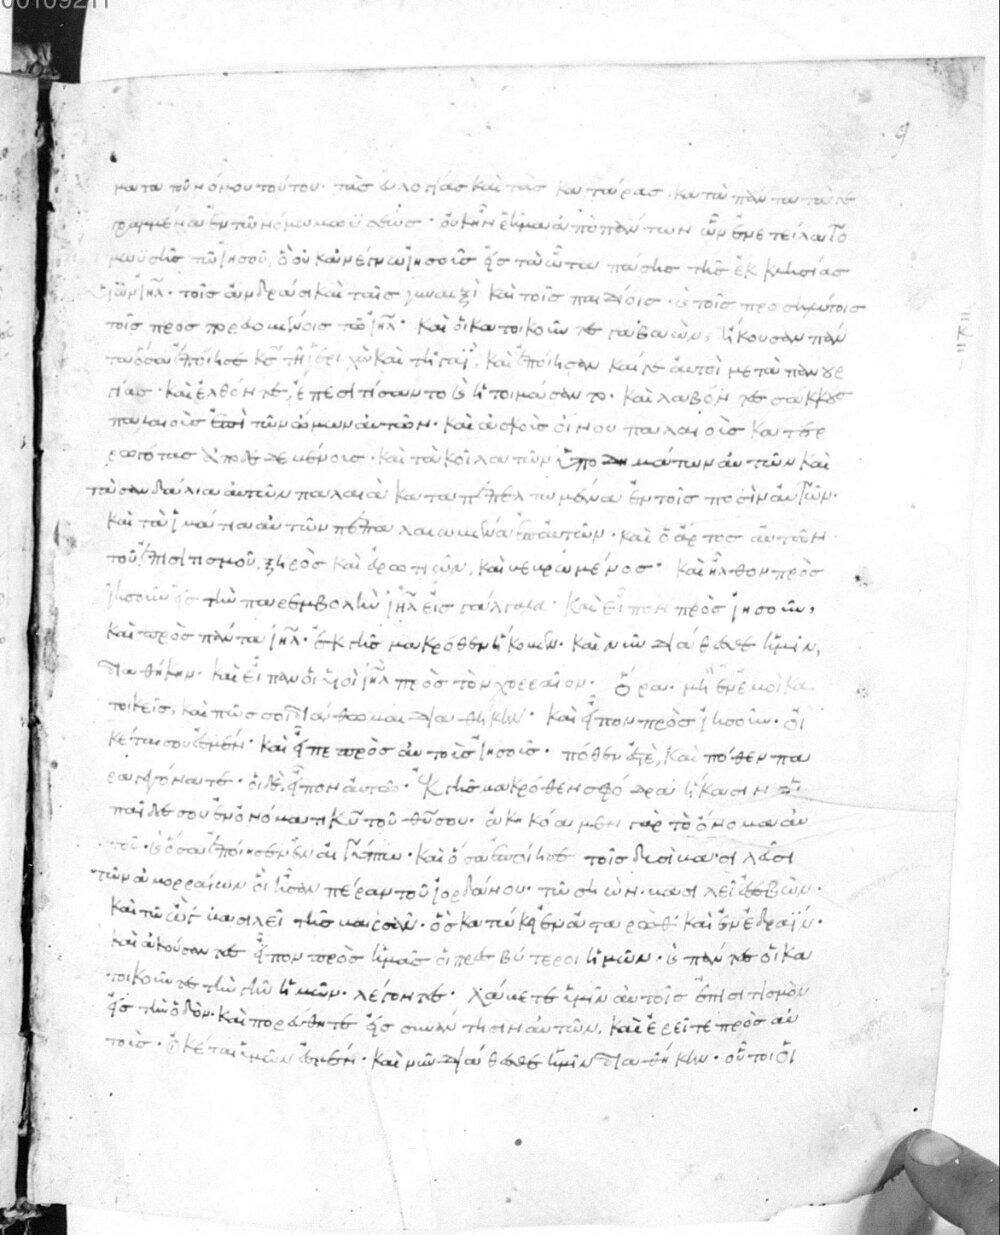 00109211
9
ματα τοῦ νόμου τούτου· τὰς εὐλογίας καὶ τὰς κατάρας. κατὰ πάντα τὰ γε
γραμμένα ἐν τῶ νόμω μωϋσέως· οὐκ ἦν ῥῆμα ἀπὸ πάντων ὧν ἐνετείλατο
μωϋσῆς τῶ ἰησοῦ, ὃ οὐκ ἀνέγνω ἰησοῦς εἰς τὰ ὦτα πάσης τῆς ἐκκλησίας
υἱῶν ιηλ· τοῖς ἀνδράσι καὶ ταῖς γυναιξὶ καὶ τοῖς παιδίοις· καὶ τοῖς προσηλύτοις
τοῖς προσπορευομένοις τῶ ιηλ· καὶ οἱ κατοικοῦντες γαβαὼν, ἤκουσαν πάν
τα ὅσα ἐποίησε κς τῆ ἱεριχὼ καὶ τῆ γαὶ, καὶ ἐποίησαν καί γε αὐτοὶ μετὰ πανουρ
γίας· καὶ ἐλθόντες, ἐπεσιτίσαντο καὶ ἡτοιμάσαντο· καὶ λαβόντες σάκκους
παλαιοὺς ἐπὶ τῶν ὤμων αὐτῶν· καὶ ἀσκοὺς οἴνου παλαιοὺς κατερ
ρωγότας ἀποδεδεμένους· καὶ τὰ κοῖλα τῶν ὑποδημάτων αὐτῶν καὶ
τὰ σανδάλια αὐτῶν παλαιὰ καταπεπελτωμένα ἐν τοῖς ποσὶν αὐτῶν·
καὶ τὰ ἱμάτια αὐτῶν πεπαλαιωμένα ἐπ' αὐτῶν· καὶ ὁ ἄρτος αὐτῶν
τοῦ ἐπισιτισμοῦ, ξηρὸς καὶ εὐρωτιῶν, καὶ βεβρωμένος· καὶ ἦλθον πρὸς
ἰησοῦν εἰς τὴν παρεμβολὴν ιηλ εἰς γάλγαλα· καὶ εἶπον πρὸς ἰησοῦν,
καὶ πρὸς πάντα ιηλ· ἐκ γῆς μακρόθεν ἥκομεν· καὶ νῦν διάθεσθε ἡμῖν,
διαθήκην· καὶ εἶπαν οἱ υἱοὶ ιηλ πρὸς τὸν χορραῖον· ὅρα· μὴ ἐν ἐμοὶ κα
τοικεῖς, καὶ πῶς σοι διαθῶμαι διαθήκην· καὶ εἶπον πρὸς ἰησοῦν· οἱ
κέται σου ἐσμέν· καὶ εἶπε πρὸς αὐτοὺς ἰησοῦς· πόθεν ἐστὲ, καὶ πόθεν πα
ραγεγόνατε· οἱ δὲ, εἶπον αὐτῶ· ἐκ γῆς μακρόθεν σφόδρα ἥκασιν οἱ
παῖδές σου ἐν ὀνόματι κυ τοῦ θυ σου· ἀκηκόαμεν γὰρ τὸ ὄνομα αὐ
τοῦ· καὶ ὅσα ἐποίησεν ἐν αἰγύπτω· καὶ ὅσα ἐποίησε τοῖς δυσὶ βασιλεῦσι
τῶν ἀμορραίων οἳ ἦσαν πέραν τοῦ ἰορδάνου· τῶ σηὼν· βασιλεῖ ἐσεβών·
καὶ τῶ ὢγ βασιλεῖ τῆς βασάν· ὃς κατώκει ἐν ἀσταρὼθ· καὶ ἐν ἐδραΐν·
καὶ ἀκούσαντες εἶπον πρὸς ἡμᾶς οἱ πρεσβύτεροι ἡμῶν· καὶ πάντες οἱ κα
τοικοῦντες τὴν γῆν ἡμῶν· λέγοντες· λάβετε ὑμῖν αὐτοῖς ἐπισιτισμὸν
εἰς τὴν ὁδόν· καὶ πορεύθητε εἰς συνάντησιν αὐτῶν, καὶ ἐρεῖτε πρὸς αὐ
τούς· οἰκέται ὑμῶν ἐσμέν· καὶ νῦν διάθεσθε ἡμῖν διαθήκην· οὗτοι οἱ